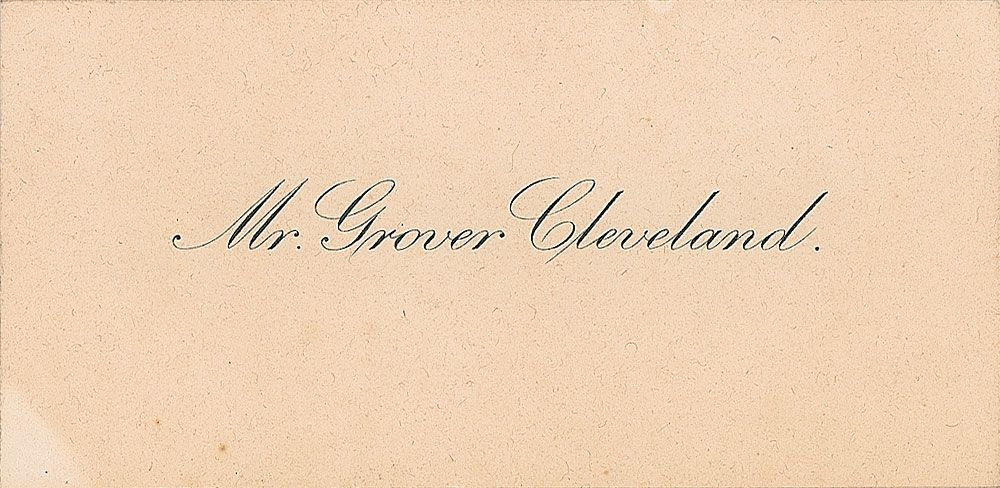 Mr. Grover Cleveland.